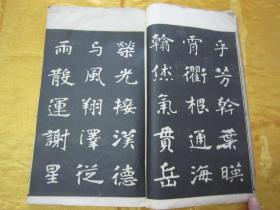 乎芳幹葉暎
霄衢根通海
翰烋氣貫岳
榮光接漢德
与風翔澤從
雨散運謝星